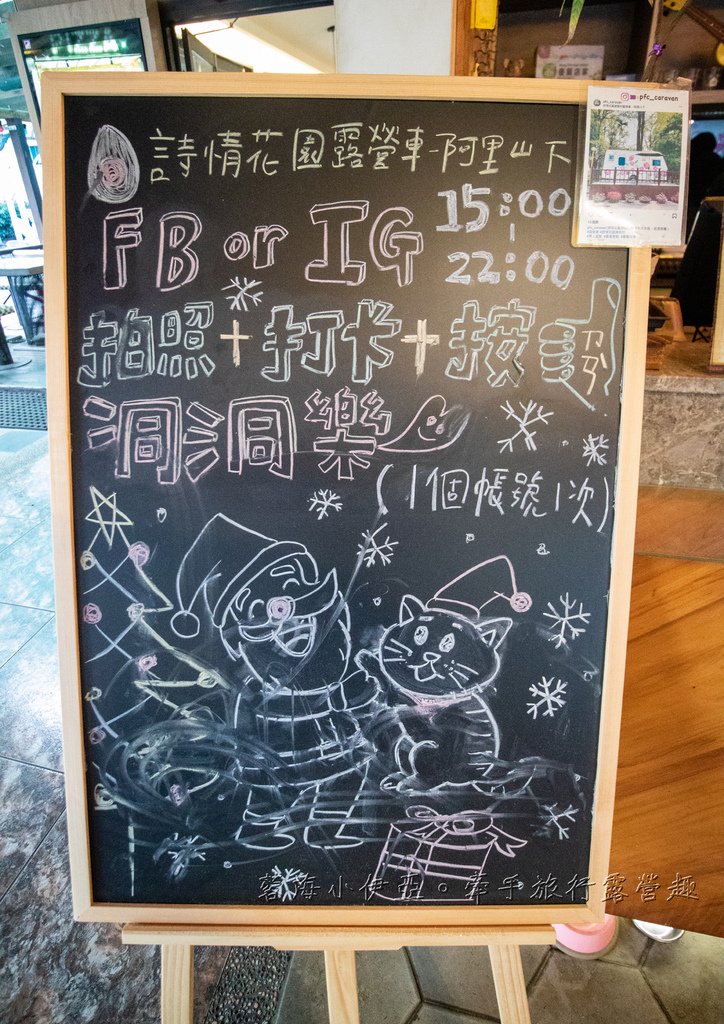 詩情花園露營車-阿里山下
FB or IG
15:00
|
22:00
拍照+打卡+按讚
洞洞樂
(1個帳號1次)
pfc_caravan
蓉海小伊亞。牽手旅行露營趣